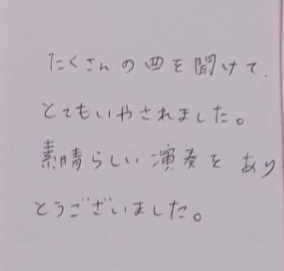 たくさんの曲を聞けて、
とてもいやされました。
素晴らしい演奏をあり
とうございました。